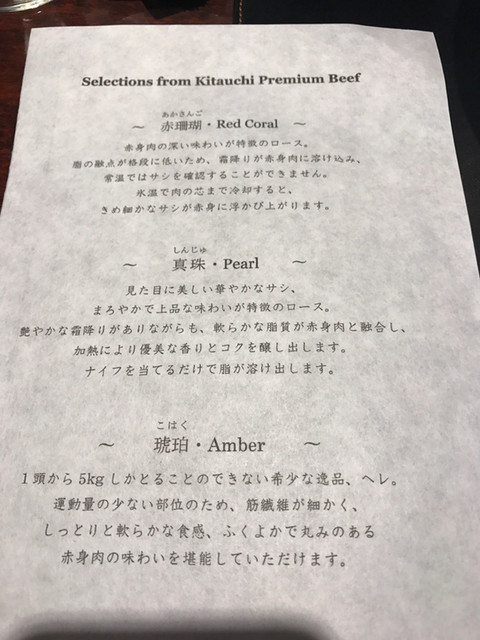 Selections from Kitauchi Premium Beef
あかさんご
～ 赤珊瑚・Red Coral ～
赤身肉の深い味わいが特徴のロース。
脂の融点が格段に低いため、霜降りが赤身肉に溶け込み、
常温ではサシを確認することができません。
氷温で肉の芯まで冷却すると、
きめ細かなサシが赤身に浮かび上がります。
しんじゅ
～ 真珠・Pearl ～
見た目に美しい華やかなサシ、
まろやかで上品な味わいが特徴のロース。
艶やかな霜降りがありながらも、軟らかな脂質が赤身肉と融合し、
加熱により優美な香りとコクを醸し出します。
ナイフを当てるだけで脂が溶け出します。
こはく
～ 琥珀・Amber ～
1頭から5kgしかとることのできない希少な逸品、ヘレ。
運動量の少ない部位のため、筋繊維が細かく、
しっとりと軟らかな食感、ふくよかで丸みのある
赤身肉の味わいを堪能していただけます。